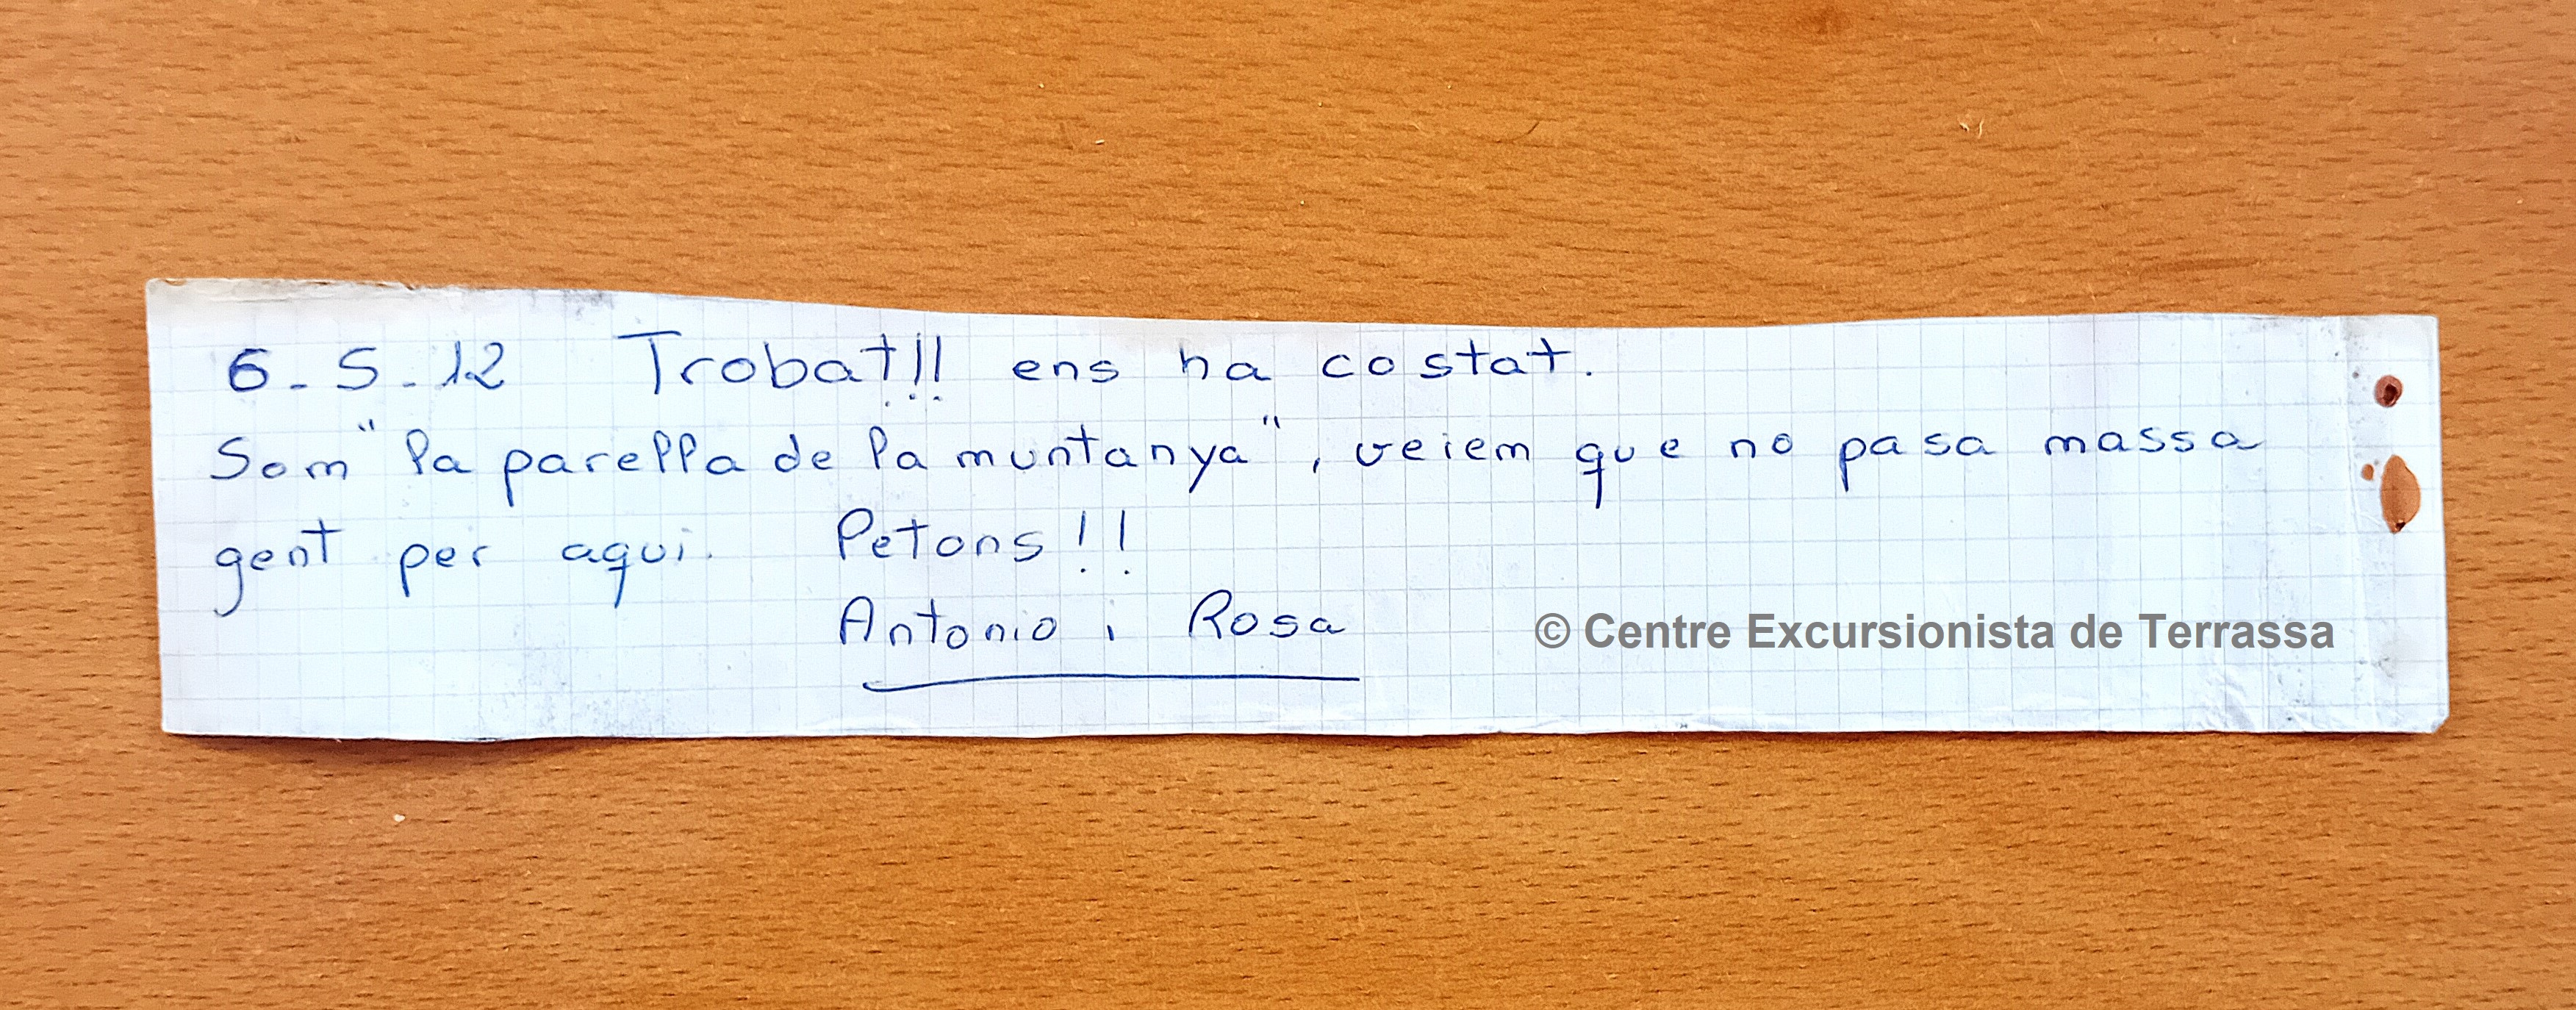 6-5-12 Trobat!!! ens ha costat.
Som "la parella de la muntanya", veiem que no pasa massa
gent per aqui. Petons!!
Antonio i Rosa
© Centre Excursionista de Terrassa